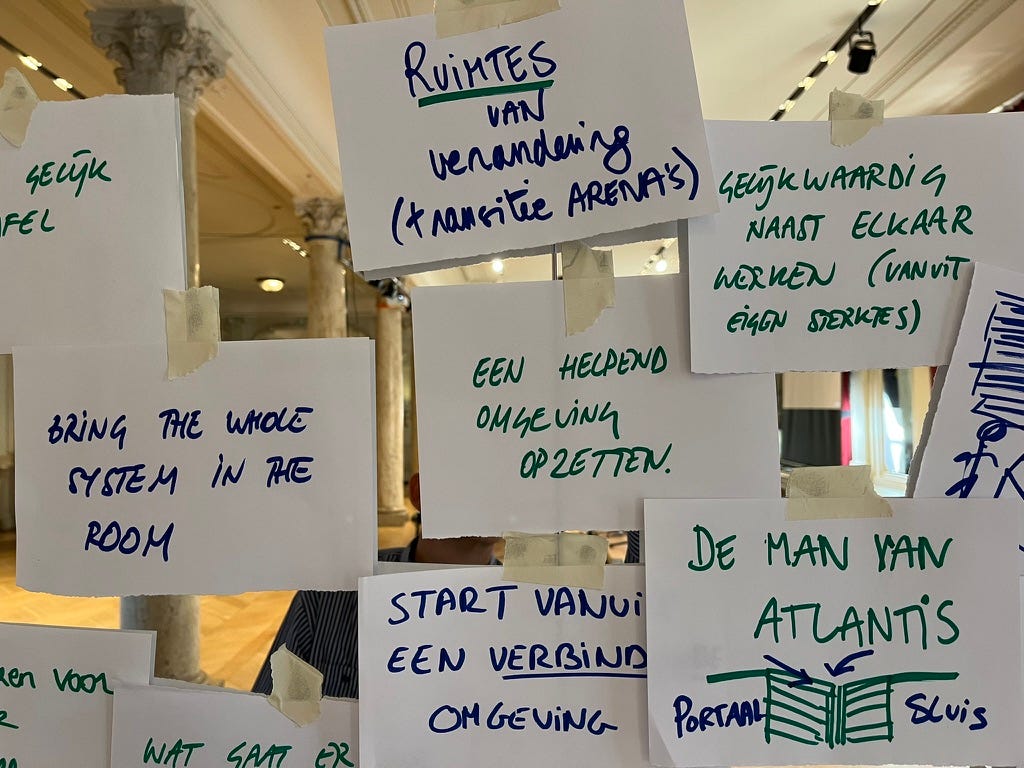 GELIJK
AFEL
RUIMTES
VAN
verandering
(transitie ARENA'S)
GELIJKWAARDIG
NAAST ELKAAR
WERKEN (VANUIT
EIGEN STERKTES)
BRING THE WHOLE
SYSTEM IN THE
ROOM
EEN HELPEND
OMGEVING
OPZETTEN.
START VANUI
EEN VERBIND
OMGEVING
DE MAN VAN
ATLANTIS
PORTAAL
SLUIS
ren voor
R
WAT GAAT ER